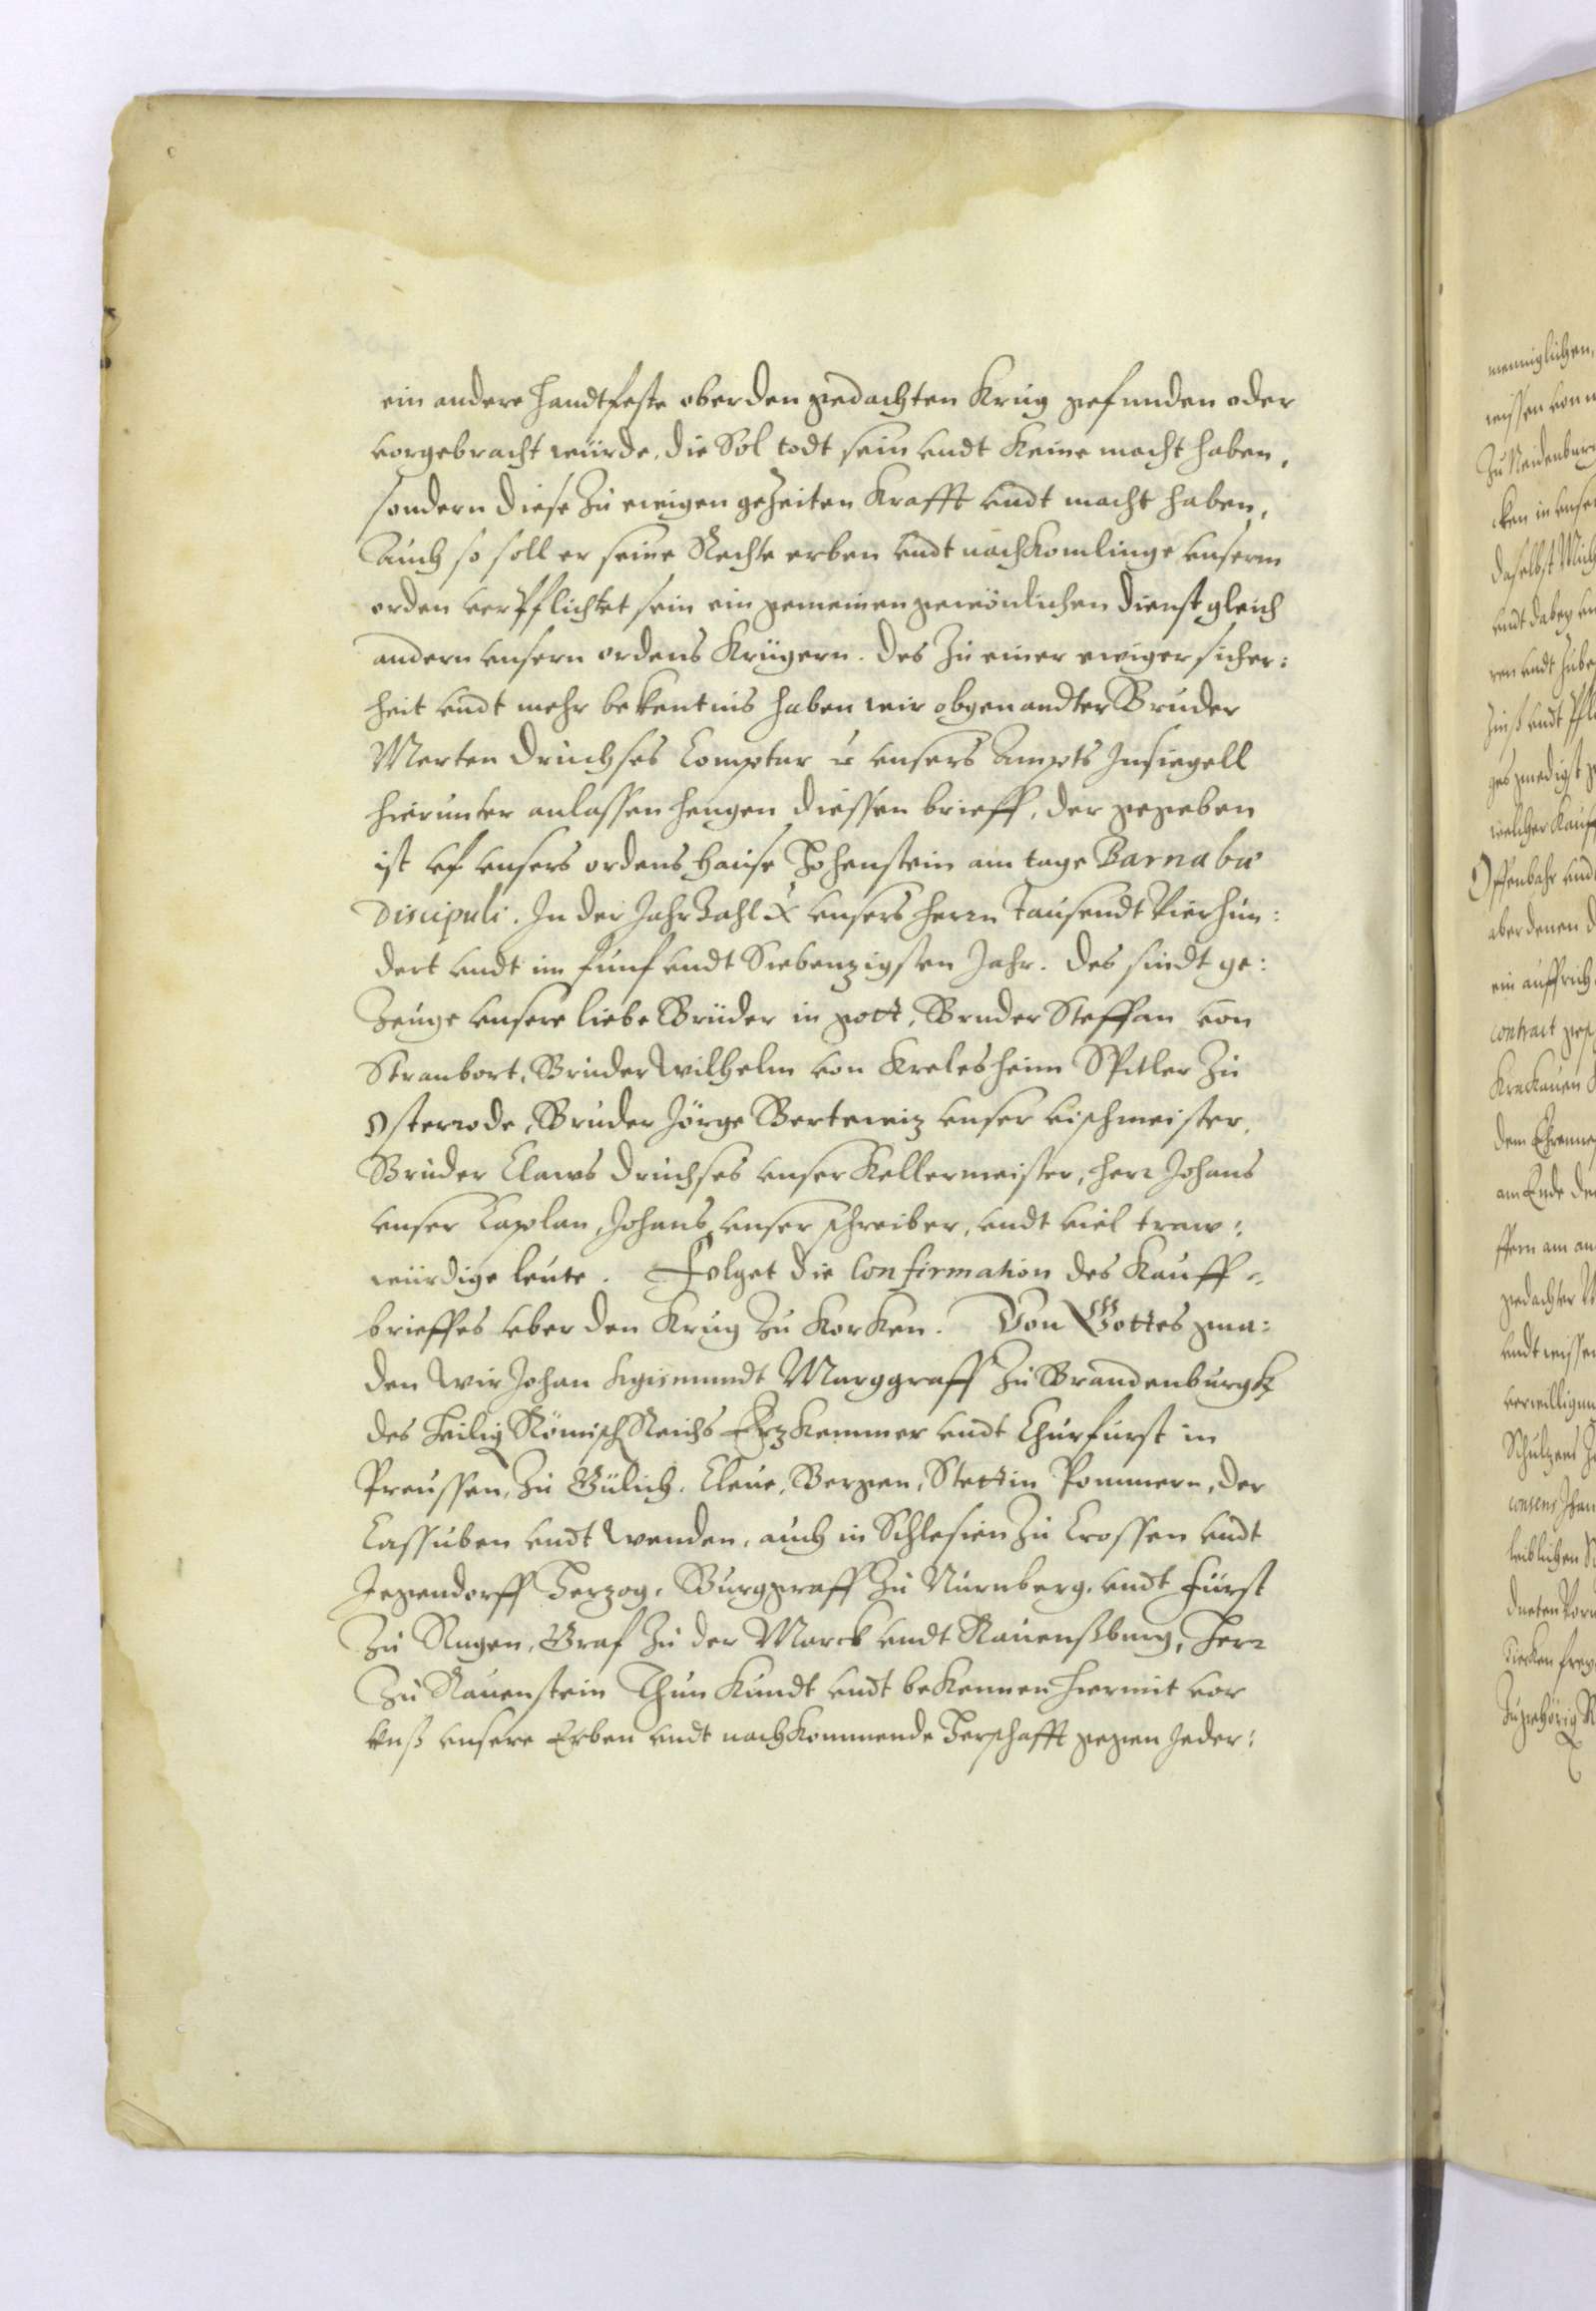 ein andere handtfeste oberden gedachten Krug gefunden oder
vorgebracht würde, die Sol todt sein vndt Keine macht haben,
sondern diese Zu ewigen geZeiten Krafft vndt macht haben,
Auch so soll er seine Rechte erben vndt nachKomlinge vnserm
orden verPflichtet sein ein gemeinen gewönlichen dienst gleich
andern vnsern ordens Krügern. Des Zu einer ewiger sicher:
heit vndt mehr bekentnis haben wir obgenandter Bruder
Merten Druchses Comptur vnsers Ampts Insiegell
hierunter anlassen hengen diessen brieff, der gegeben
ist vf vnsers ordens hause Hohenstein am tage Barnabae
Discipuli. In der JahrZahl X vnsers herrn Tausendt Vierhun:
dert vndt im funf vndt Siebenzigsten Jahr. Des sindt ge:
Zeuge vnsere liebe Brüder in gott, Bruder Steffan von
Stranbort, Bruder Wilhelm von Krelesheim Spitler Zu
Osterrode, Bruder Jörge Bertewiz vnser vischmeister,
Bruder Claws Druchses vnser Kellermeister, herr Johans
vnser Caplan, Johans vnser schreiber, vndt viel traw:
würdige leute. Folget die Confirmation des Kauff=
brieffes vber den Krug Zu Korken. Von Gottes gna:
den Wir Johan Sigismundt Marggraff Zu Brandenburgk
des heilig Römisch Reichs ErzKemmer vndt Churfurst in
Preussen, Zu Gülich, Cleue, Bergen, Stettin Pommern, der
Cassuben vndt Wenden, auch in Schlesien Zu Crossen vndt
Jegendorff Herzog, Burggraff Zu Nürnberg, vndt Fürst
Zu Rugen, Graf Zu der Marck vndt Rauenßburg, Herr
Zu Rauenstein Thun Kundt vndt beKennen hiermit vor
vnß vnsere Erben vndt nachKommende Herschafft gegen Jeder:
menniglichen,
wissen von
Zu Neidenburg
daselbst
vndt dabey
welcher Kauff
Offenbahr vndt
aber denen
contract
am Ende
gedachter
vndt wissen
consens
leiblichen